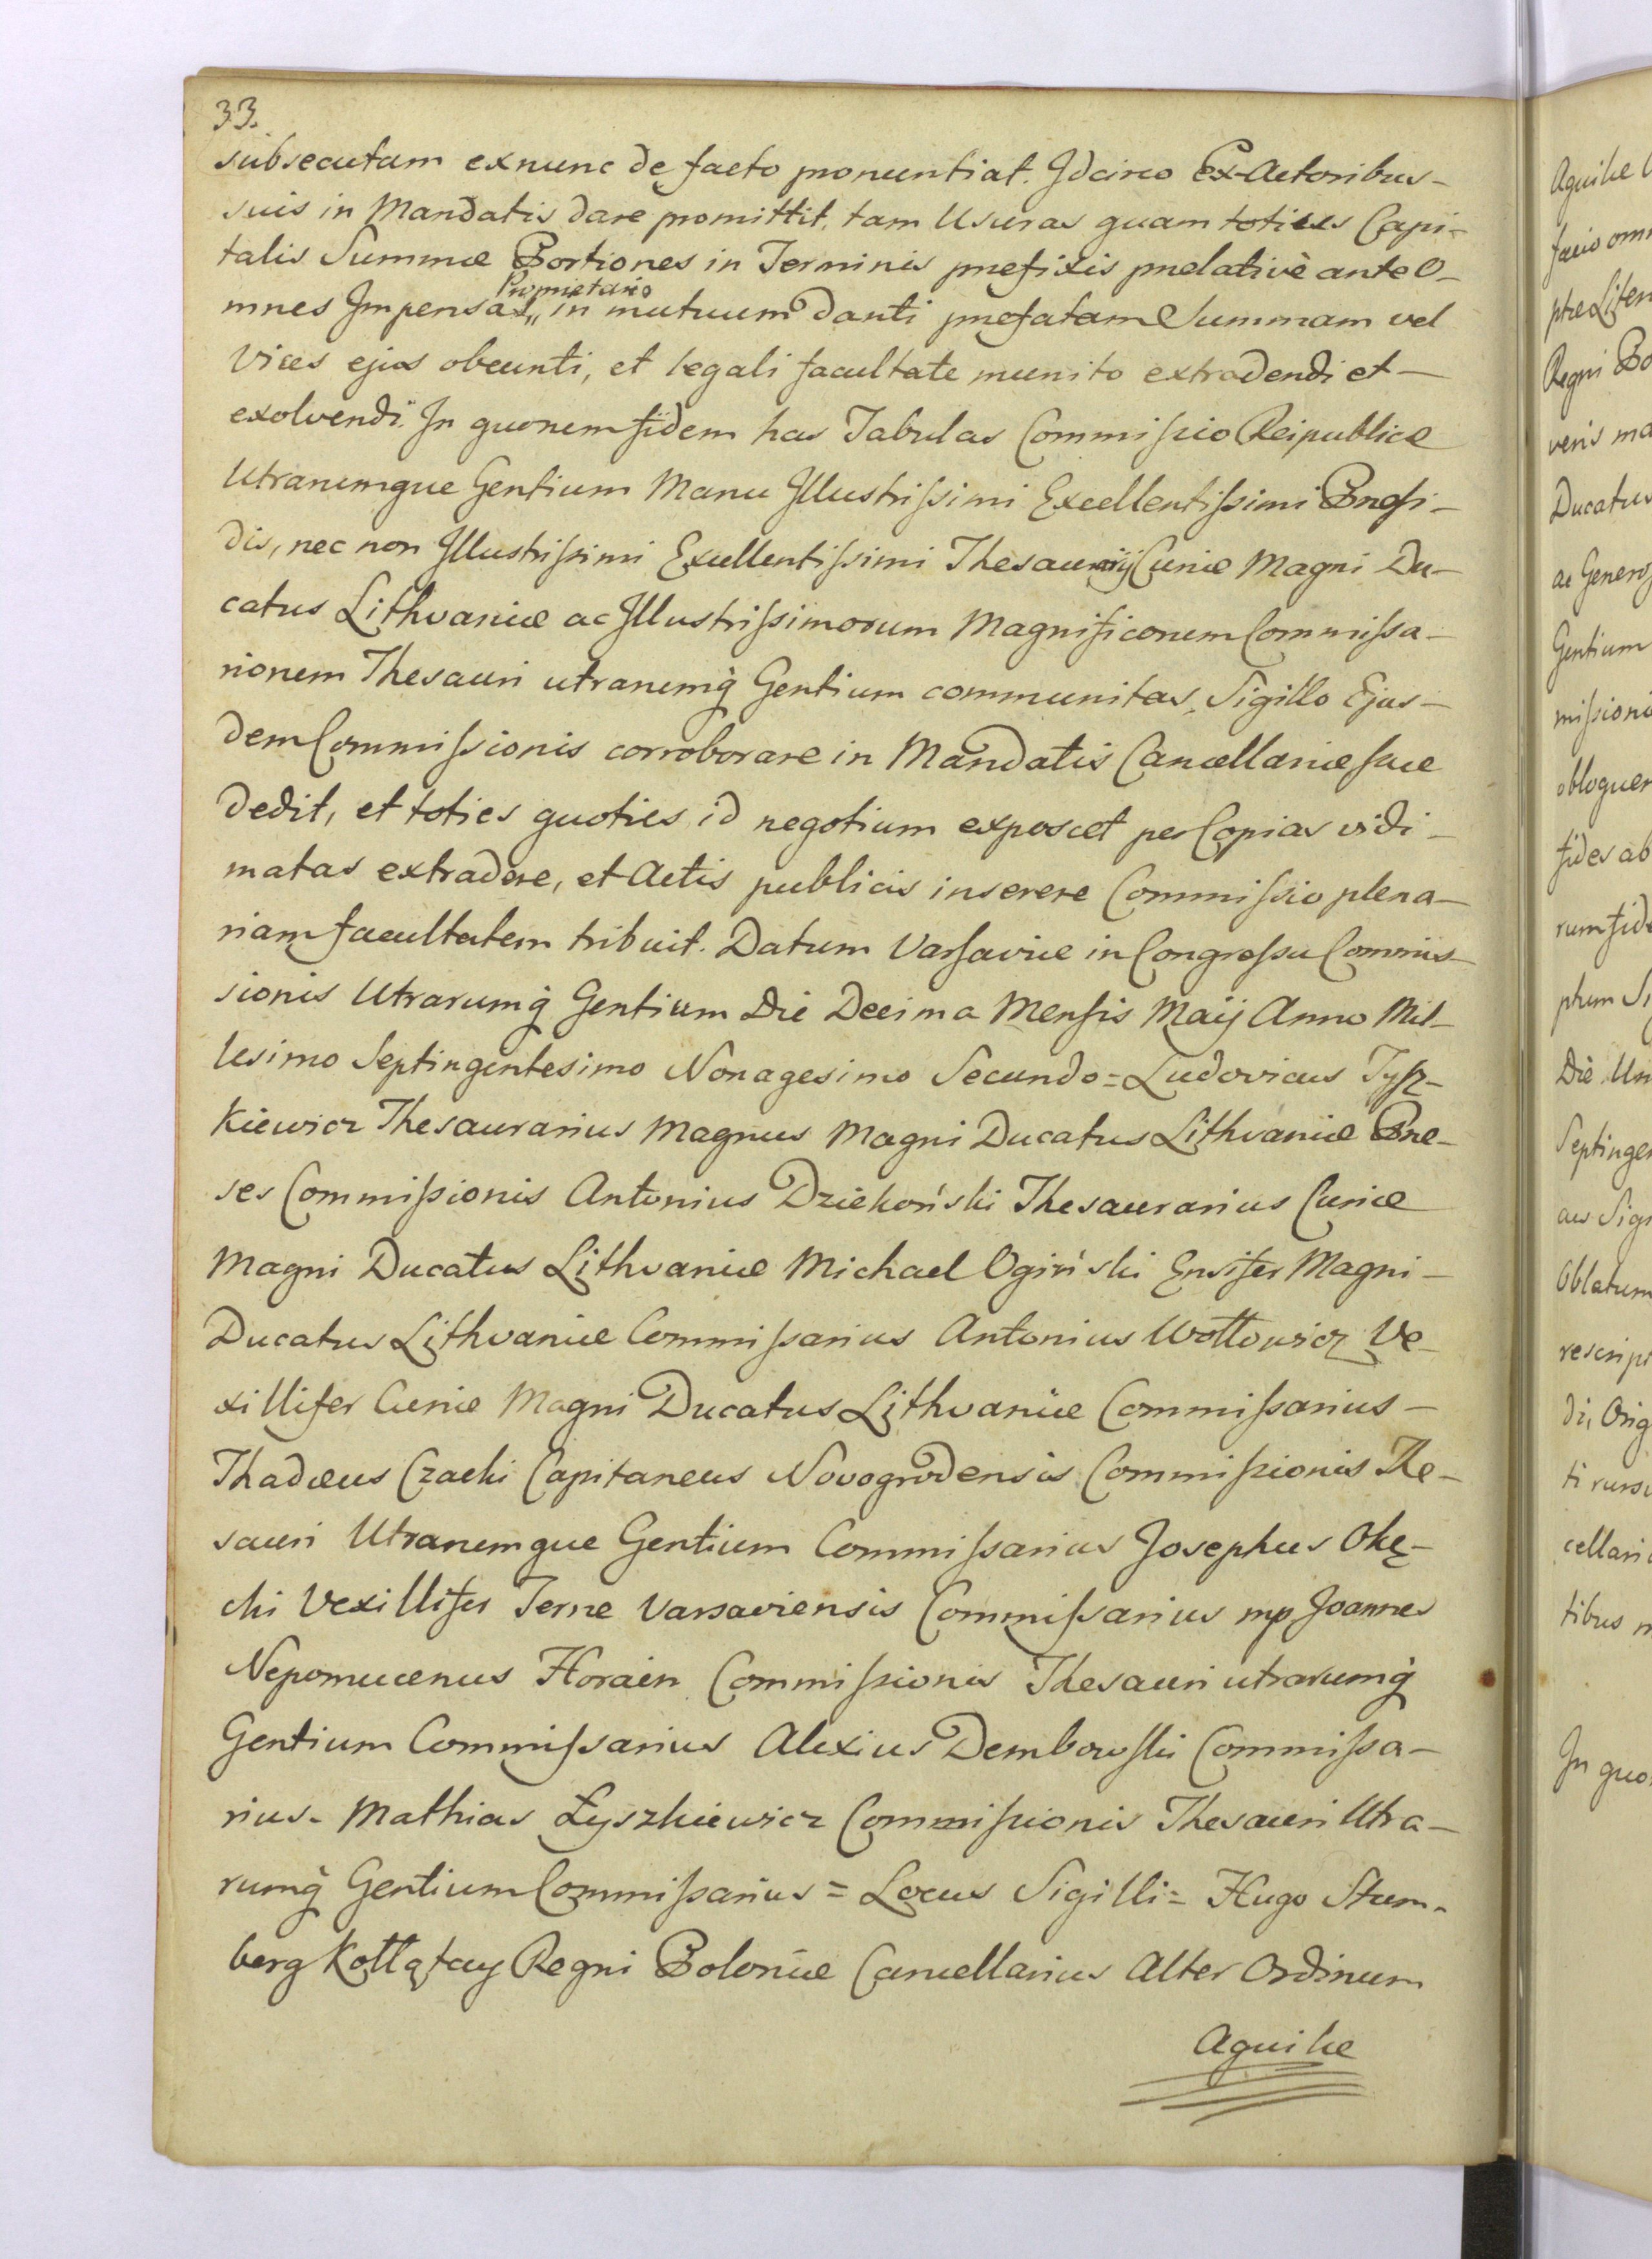 33.
subsecutam exnunc de facto pronuntiat. Idcirco Ex-Actoribus-
suis in Mandatis dare promittit, tam Usuras quam toties Capi-
talis Summæ Portiones in Terminis præfixis prælativè ante O-
Proprietario
mnes Impensas„ in mutuum Danti præfatam Summam vel
Vices ejus obeunti, et legali facultate munito extradendi et-
exolvendi. In quorum fidem has Tabulas Commissio Reipublicæ
Utrarumque Gentium Manu Illustrissimi Excellentissimi Præsi-
dis, nec non Illustrissimi Excellentissimi Thesaurarij Curiæ Magni Du-
catus Lithvaniæ ac Illustrissimorum Magnificorum Commissa-
riorum Thesauri utrarumq̀ Gentium communitas, Sigillo Ejus-
dem Commissionis corroborare in Mandatis Cancellariæ suæ
dedit, et toties quoties id negotium exposcet per Copias vidi-
matas extradere, et Actis publicis inserere Commissio plena-
riam facultatem tribuit. Datum Varsaviæ in Congressu Commis-
sionis Utrarumq̀ Gentium Die Decima Mensis Maij Anno Mil-
lesimo Septingentesimo Nonagesimo Secundo = Ludovicus Tysz-
kiewicz Thesaurarius Magnus Magni Ducatus Lithvaniæ Præ-
ses Commissionis Antonius Dziekoński Thesaurarius Curiæ
Magni Ducatus Lithvaniæ Michael Ogiński Ensifer Magni-
Ducatus Lithvaniæ Commissarius Antonius Wołłowicz Ve-
xillifer Curiæ Magni Ducatus Lithvaniæ Commissarius-
Thadæus Czacki Capitaneus Novogrodensis Commissionis The-
sauri Utrarumque Gentium Commissarius Josephus Okę-
cki Vexillifer Terræ Varsaviensis Commissarius mp Joannes
Nepomucenus Horain Commissionis Thesauri utrarumq̀
Gentium Commissarius Alexius Dembowski Commissa-
rius. Mathias Łyszkiewicz Commissionis Thesauri Utra-
rumq̀ Gentium Commissarius = Locus Sigilli = Hugo Stum-
berg Kołłątay Regni Poloniæ Cancellarius Alter Ordinum
Aquilæ